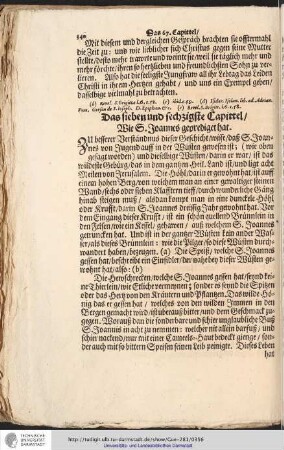 140 Das 67. Capittel/
Mit diesem und dergleichen Gespräch brachten sie offtermahl
die Zeit zu: und wie lieblicher sich Christus gegen seine Mutter
stellte/desto mehr trawrte und weinte sie/weil sie täglich mehr und
mehr förchte/ihren so hertzlichen und freundlichsten Sohn zu ver-
lieren. Also hat die seeligste Jungfraw all ihr Lebtag das Leiden
Christi in ihrem Hertzen gehabt/ und uns ein Exempel geben/
dasselbige vielmahl zu betrachten.
Das sieben und sechzigste Capittel/
Wie S. Joannes geprediget hat.
Zu besserer Verständnus dieser Geschicht/wisse/daß S. Joan-
nes von Jugend auff in der Wüsten gewesen ist; (wie oben
gesagt worden) und dieselbige Wüsten/ darin er war/ ist das
wildeste Gebürg/das in dem gantzen Heil. Land ist/und ligt acht
Meilen von Jerusalem. Die Höhl/darin er gewohnt hat/ist auff
einem hohen Berg/von welchem man an einer gewaltiger steinen
Wand/sechs oder sieben Klaffteren tieff/durch wunderliche Gäng
hinab steigen muß; alsdan kompt man in eine dunckele Höhl
oder Krufft/darin S. Joannes dreissig Jahr gewohnet hat. Vor
dem Eingang dieser Krufft/ ist ein schön quellends Brünnlein in
den Felsen/wie ein Kessel/ gehawen/ auß welchem S. Joannes
getruncken hat. Und ist in der gantzer Wüsten kein ander Was-
ser/als dieses Brünnlein: wie die Pilger/so diese Wüsten durch-
wandert haben/bezeugen. (a) Die Speiß/ welche S. Joannes
gessen hat/beschreibt ein Einsidler/der nahe bey dieser Wüsten ge-
wohnt hat/also: (b)
Die Hewschrecken/welche S. Joannes gessen hat/seynd kei-
ne Thierlein/wie Etliche vermeinen; sonder es seynd die Spitzen
oder das Hertz von den Kräutern und Pflantzen. Das wilde Hö-
nig das er gessen hat/ welches von den wilden Immen in den
Bergen gemacht wird/ist überauß bitter/und dem Geschmack zu-
gegen. Worauß dan die sonderbare und schier unglaubliche Buß
S. Joannis in acht zu nemmen: welcher nit allein barfuß/ und
schier nackend/nur mit einer Cameels-Haut bedeckt gienge/ son-
der auch mit so bittern Speisen seinen Leib peinigte. Dieses Leben
hat
TECHNISCHE
UNIVERSITÄT
DARMSTADT
Universitäts- und Landesbibliothek Darmstadt
http://tudigit.ulb.tu-darmstadt.de/show/Gue-281/0356